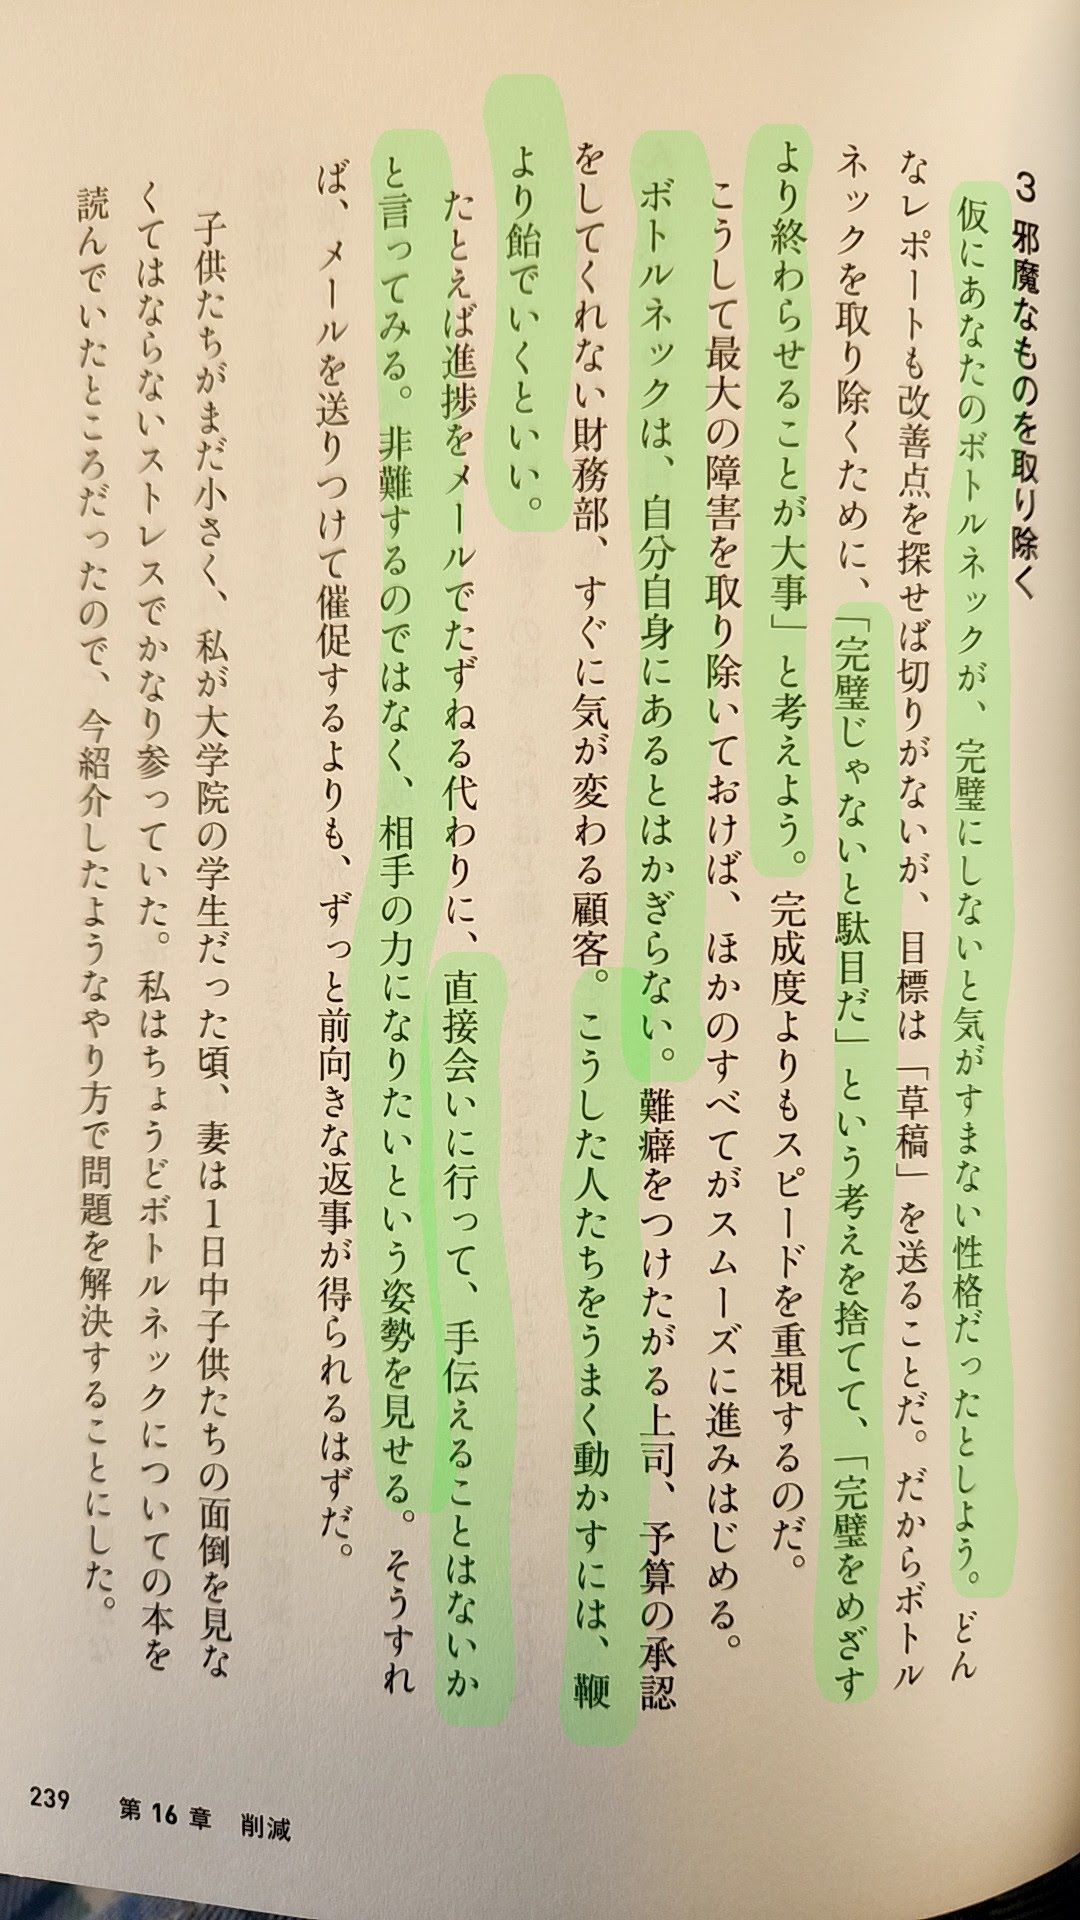 3 邪魔なものを取り除く
仮にあなたのボトルネックが、完璧にしないと気がすまない性格だったとしよう。どん
なレポートも改善点を探せば切りがないが、目標は「草稿」を送ることだ。だからボトル
ネックを取り除くために、「完璧じゃないと駄目だ」という考えを捨てて、「完璧をめざす
より終わらせることが大事」と考えよう。完成度よりもスピードを重視するのだ。
こうして最大の障害を取り除いておけば、ほかのすべてがスムーズに進みはじめる。
ボトルネックは、自分自身にあるとはかぎらない。難癖をつけたがる上司、予算の承認
をしてくれない財務部、すぐに気が変わる顧客。こうした人たちをうまく動かすには、鞭
より飴でいくといい。
たとえば進捗をメールでたずねる代わりに、直接会いに行って、手伝えることはないか
と言ってみる。非難するのではなく、相手の力になりたいという姿勢を見せる。そうすれ
ば、メールを送りつけて催促するよりも、ずっと前向きな返事が得られるはずだ。
子供たちがまだ小さく、私が大学院の学生だった頃、妻は1日中子供たちの面倒を見な
くてはならないストレスでかなり参っていた。私はちょうどボトルネックについての本を
読んでいたところだったので、今紹介したようなやり方で問題を解決することにした。
239 第16章 削減